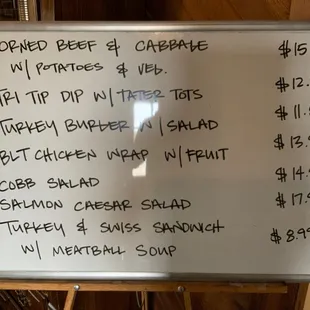 ORNED BEEF & CABBAGE $15
W/ POTATOES & VEG.
TRI TIP DIP W/ TATER TOTS $12.
TURKEY BURGER W/ SALAD $11.
BLT CHICKEN WRAP W/ FRUIT $13.
COBB SALAD $14.
SALMON CAESAR SALAD $17.
TURKEY & SWISS SANDWICH $8.99
W/ MEATBALL SOUP